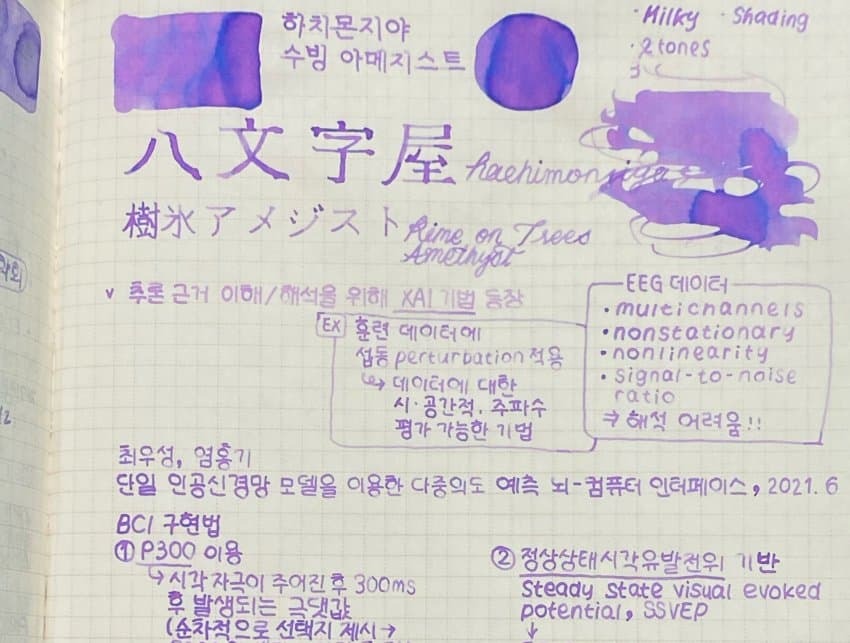 하치몬지야
수빙 아메지스트
· Milky · Shading
· 2 tones
八文字屋
hachimonjiya
樹氷アメジスト
Rime on Trees
Amethyst
v 추론 근거 이해/해석을 위해 XAI 기법 등장
EX 훈련 데이터에
섭동 perturbation 적용
↳ 데이터에 대한
시·공간적, 주파수
평가 가능한 기법
EEG 데이터
· multichannels
· nonstationary
· nonlinearity
· signal-to-noise
ratio
⇒ 해석 어려움!!
최우성, 염홍기
단일 인공신경망 모델을 이용한 다중의도 예측 뇌-컴퓨터 인터페이스, 2021. 6
BCI 구현법
① P300 이용
↳ 시각 자극이 주어진 후 300ms
후 발생되는 극댓값
(순차적으로 선택지 제시 →
② 정상상태시각유발전위 기반
Steady state visual evoked
potential, SSVEP
↓